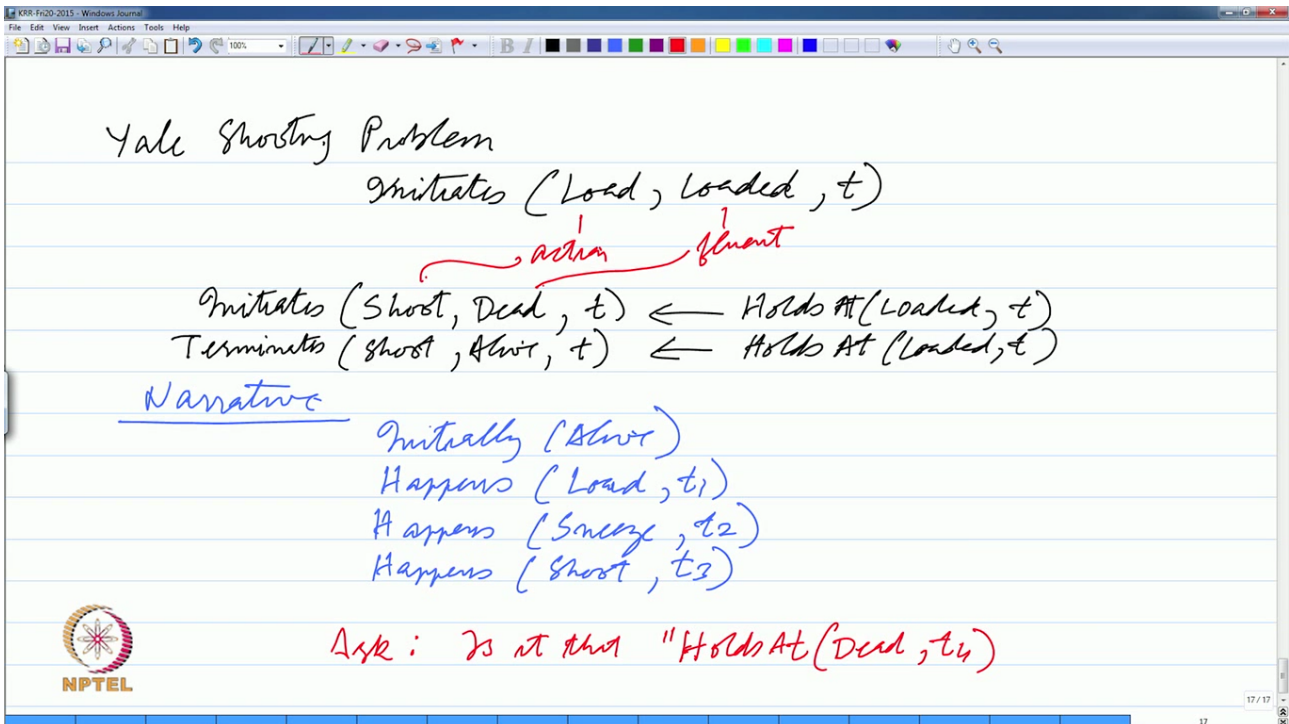 KRR-Fri20-2015 - Windows Journal
File Edit View Insert Actions Tools Help
100% B I
Yale Shooting Problem
Initiates (Load, Loaded, t)
action fluent
Initiates (Shoot, Dead, t) ← HoldsAt(Loaded, t)
Terminates (Shoot, Alive, t) ← HoldsAt (Loaded, t)
Narrative
Initially (Alive)
Happens (Load, t1)
Happens (Sneeze, t2)
Happens (Shoot, t3)
Ask: Is it that "HoldsAt(Dead, t4)
NPTEL
17 / 17
17